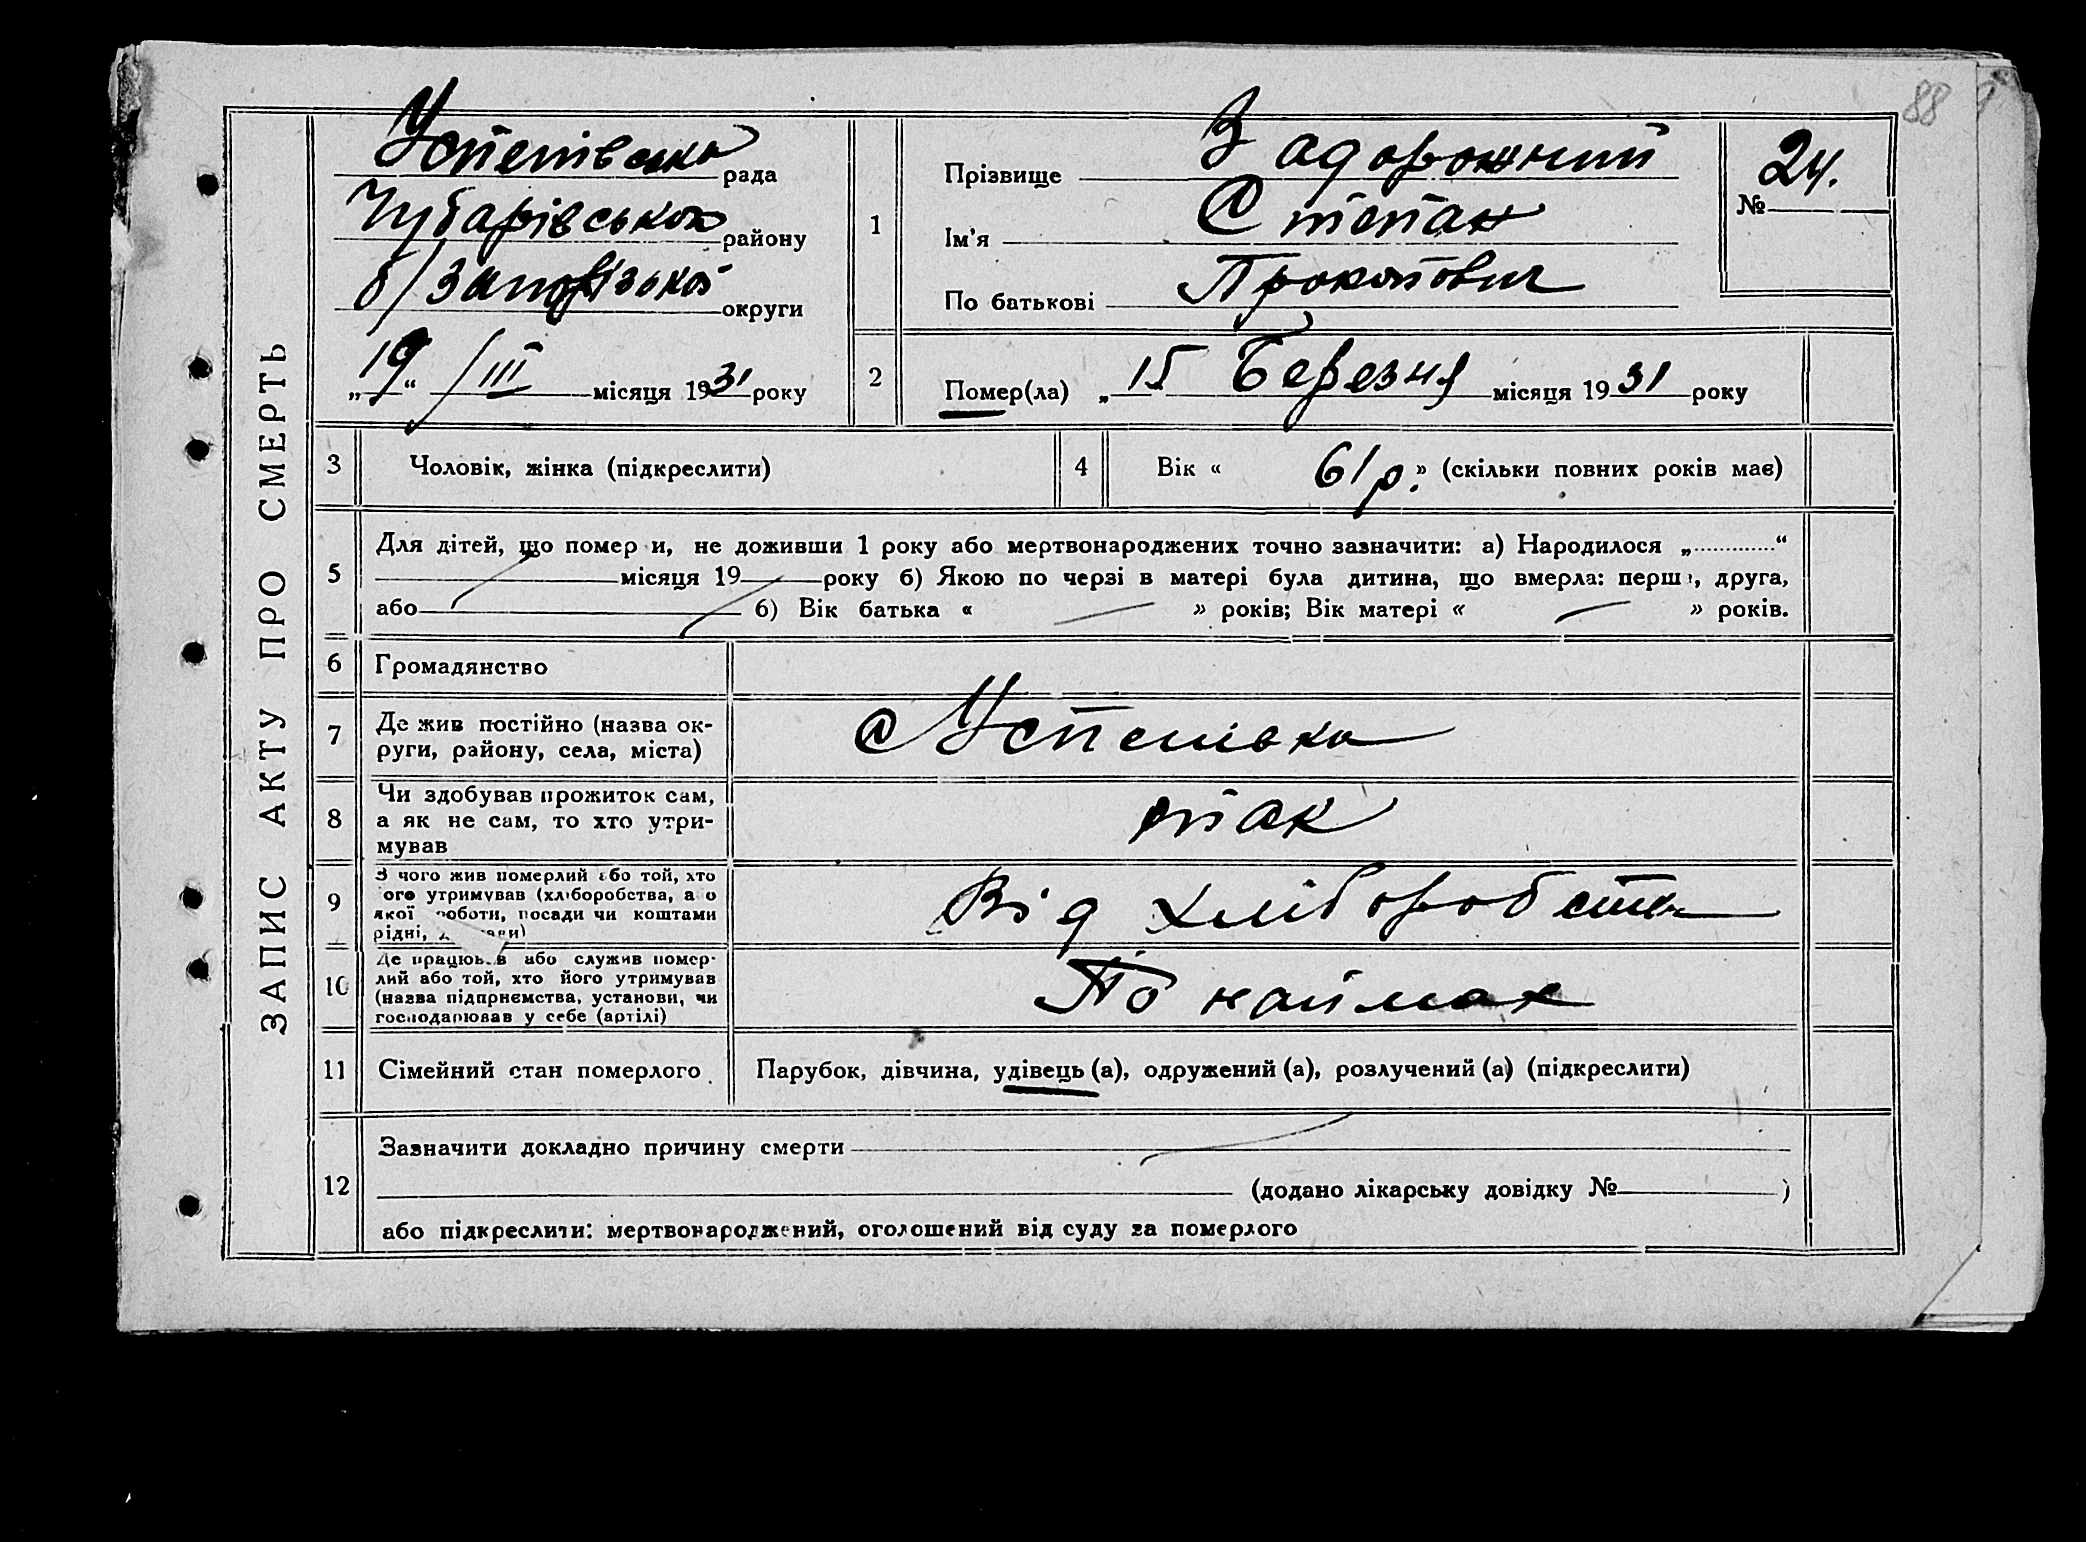 88
ЗАПИС АКТУ ПРО СМЕРТЬ
Успенівська рада
Чубарівського району
б/Запорізької округи
„19“ /III місяця 1931 року
1
Прізвище Задорожний
Ім'я Степан
По батькові Прокопович
№ 24.
2
Помер(ла) „15 Березня місяця 1931 року
3 Чоловік, жінка (підкреслити)
4 Вік « 61 р. » (скільки повних років має)
5 Для дітей, що помер и, не доживши 1 року або мертвонароджених точно зазначити: а) Народилося „ “
місяця 19 року б) Якою по черзі в матері була дитина, що вмерла: перш , друга,
або б) Вік батька « » років; Вік матері « » років.
6 Громадянство
7 Де жив постійно (назва ок-
руги, району, села, міста)
с Успенівка
8 Чи здобував прожиток сам,
а як не сам, то хто утри-
мував
так
9 З чого жив померлий або той, хто
ого утримував (хліборобства, а о
якої роботи, посади чи коштами
рідні,
Від хліборобства
10 Де працював або служив помер-
лий або той, хто його утримував
(назва підприємства, установи, чи
господарював у себе (артілі)
По наймах
11 Сімейний стан померлого
Парубок, дівчина, удівець (а), одружений (а), розлучений (а) (підкреслити)
12 Зазначити докладно причину смерти
(додано лікарську довідку № )
або підкреслити: мертвонароджений, оголошений від суду за померлого